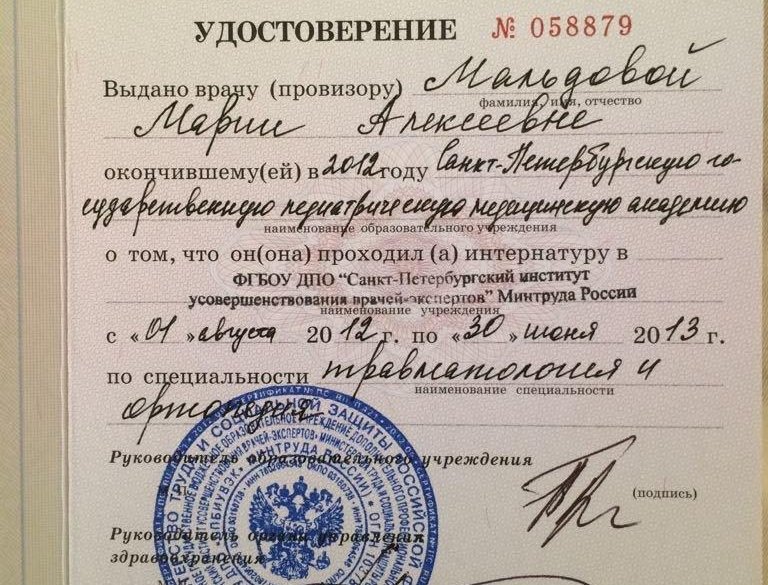 УДОСТОВЕРЕНИЕ № 058879
Выдано врачу (провизору) Мальдовой
фамилия, имя, отчество
Марии Алексеевне
окончившему(ей) в 2012 году Санкт-Петербургскую го-
сударственную педиатрическую медицинскую академию
наименование образовательного учреждения
о том, что он(она) проходил (а) интернатуру в
ФГБОУ ДПО "Санкт-Петербургский институт
усовершенствования врачей-экспертов" Минтруда России
наименование учреждения
с «01» августа 2012 г. по «30» июня 2013 г.
по специальности травматология и
наименование специальности
ортопедия
Руководитель образовательного учреждения
(подпись)
Руководитель органа управления
здравоохранения